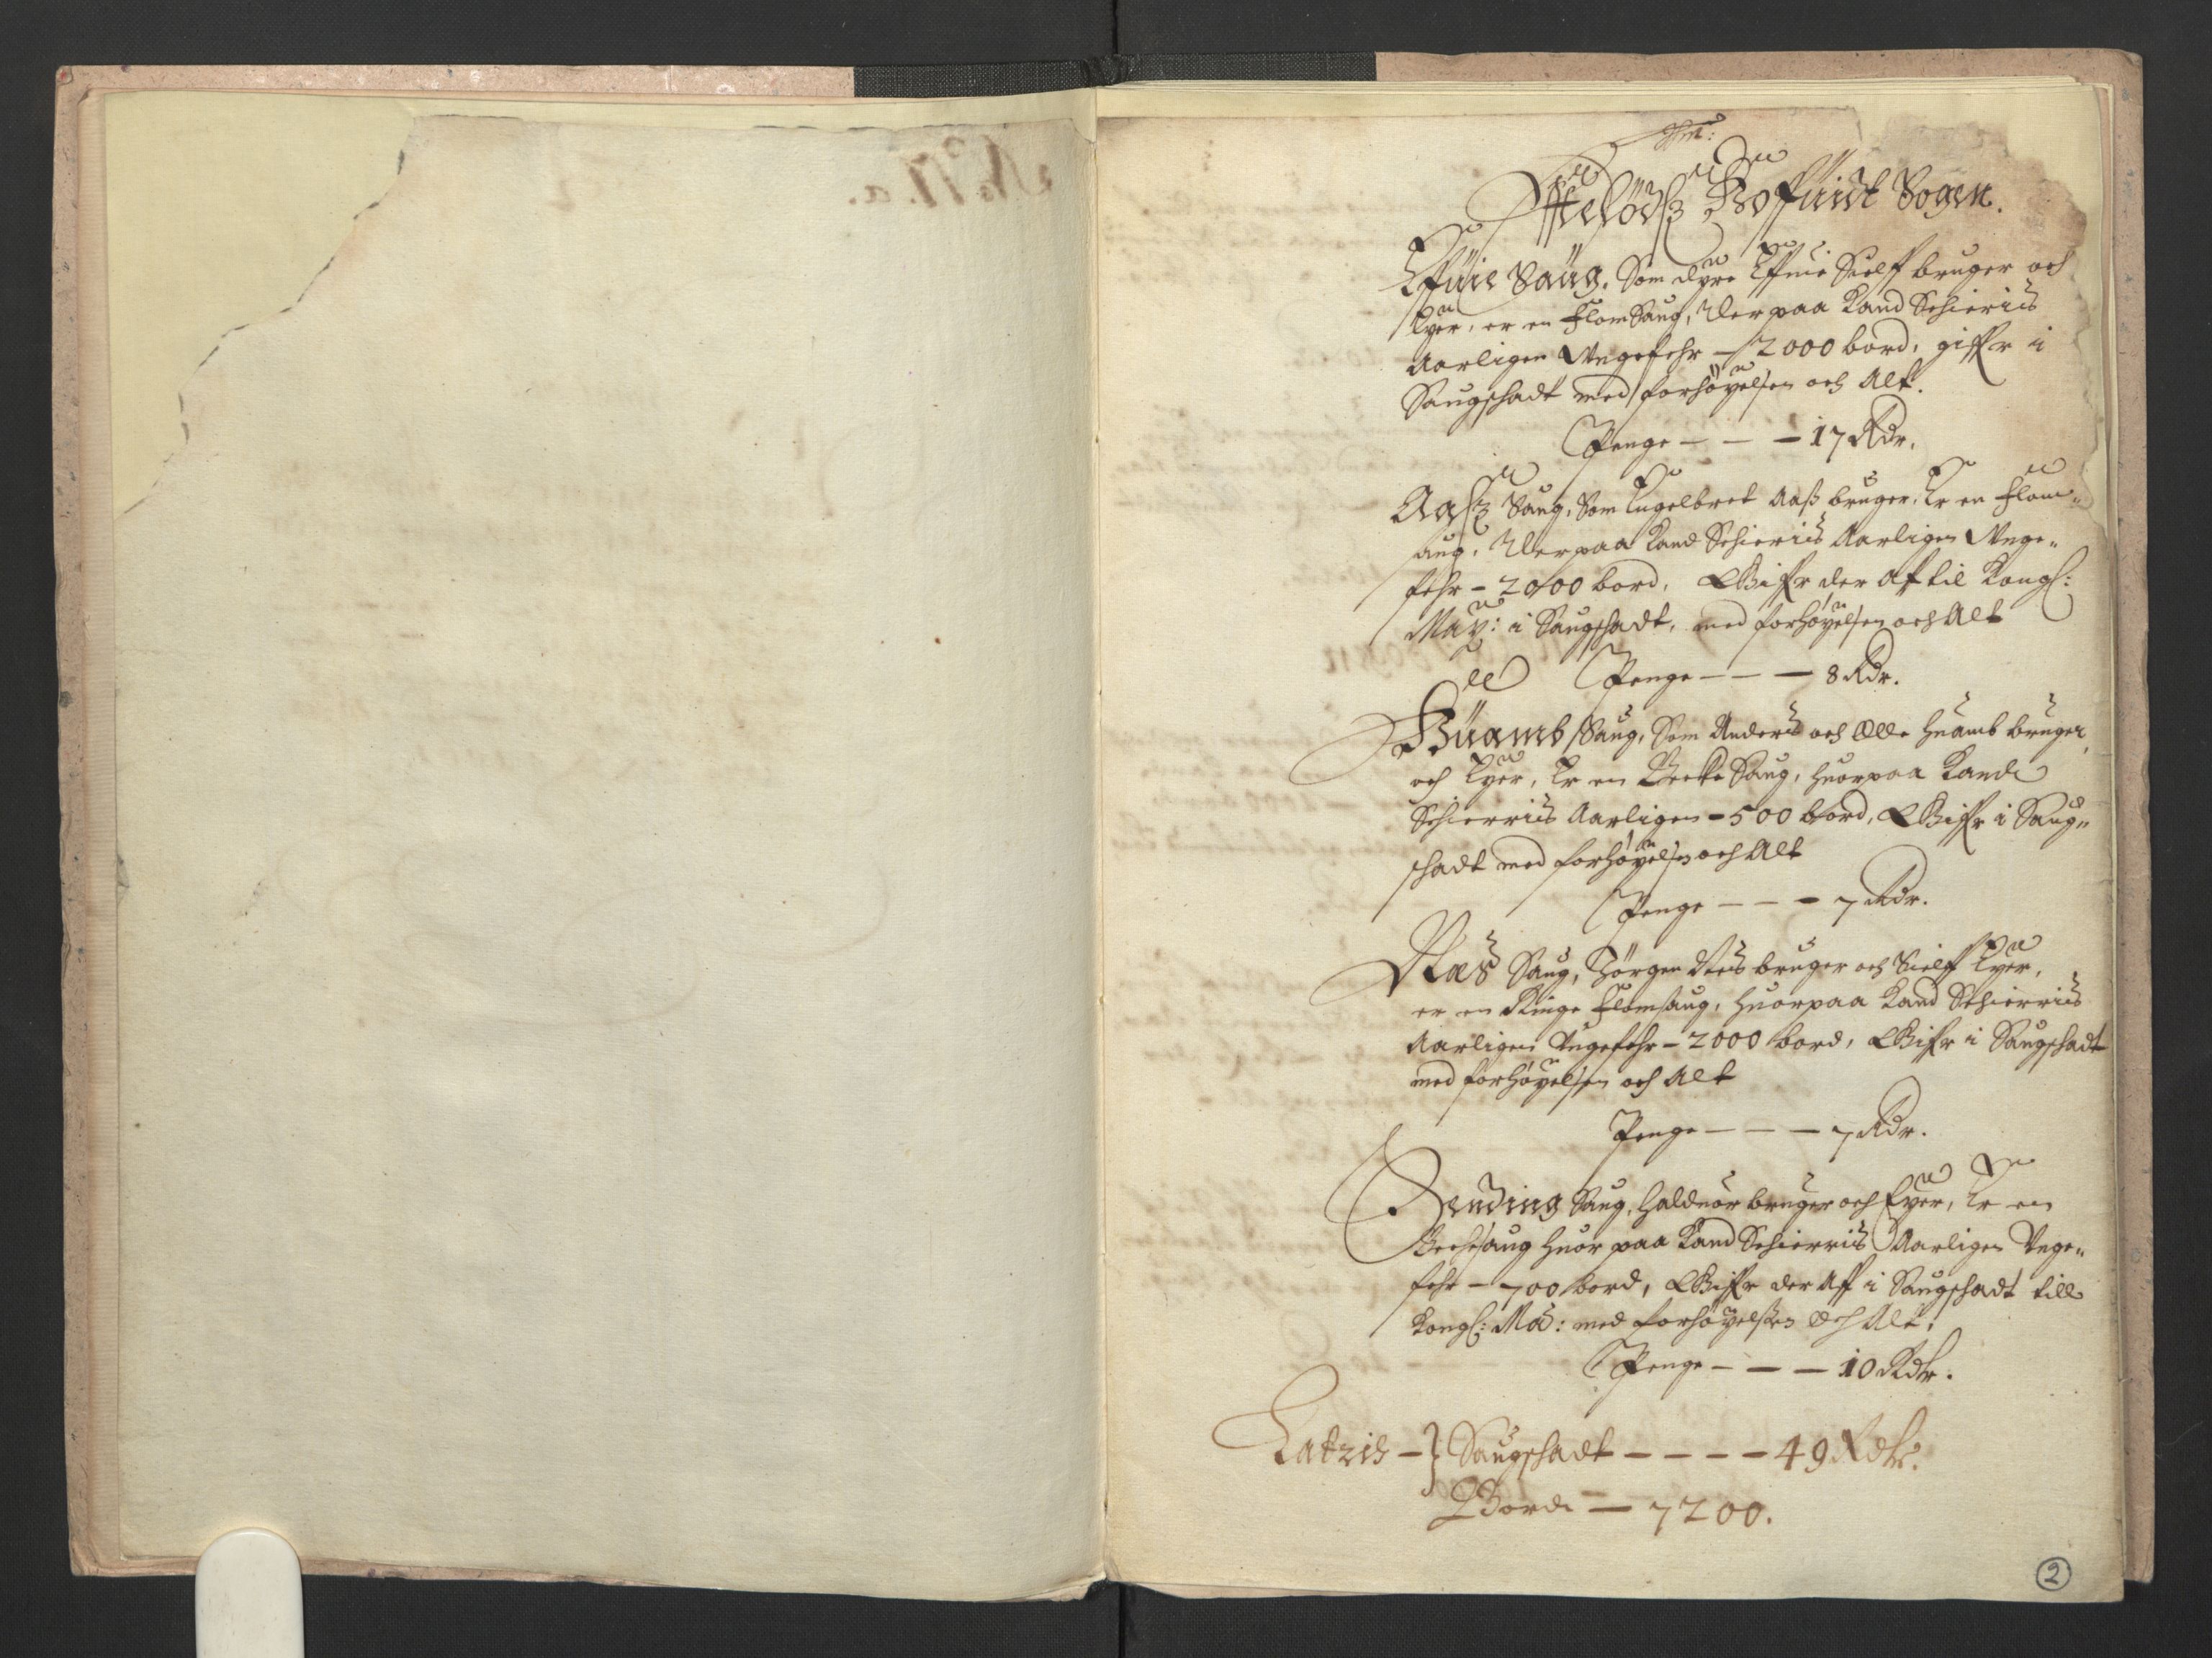 No 17. a.
Hm:
Effteløds Proffuist Sogen.
Effuie Saug, Som Dyre Effuie Sielff bruger och
Eyer, er en Flom Saug, Der paa Kand Schieris
Aarligen Ungefehr – 2000 bord, giffr i
Saugschadt med forhøyelsen och Alt.
Penge – – – 17 Rdr.
Aas Saug, Som Engelbret Aaß bruger, Er en Flom„
saug, Der paa Kand Schieris Aarligen Unge„
fehr – 2000 bord, Giffr der Aff til Kongl:
May: i Saugschadt, med forhøyelsen och Alt
Penge – – – 8 Rdr.
Huamb Saug, Som Anders och Olle Huamb bruger
och Eyer, Er en Becke Saug, huorpaa Kand
Schierris Aarligen – 500 bord, Giffr i Saug„
schadt med forhøyelsen och Alt
Penge – – – 7 Rdr.
Næs Saug, Jørgen Næs bruger och Sielff Eyer,
er en Ringe Flomsaug, huorpaa Kand Schierris
Aarligen Ungefehr – 2000 bord, Giffr i Saugschadt
med forhøyelsen och Alt
Penge – – – 7 Rdr.
Saug, Halduor bruger och Eyer, Er en
Beckesaug huor paa Kand Schierris Aarligen Unge„
fehr – 700 bord, Giffr der Aff i Saugschadt till
Kongl: Ma: med forhøyelsen Och Alt,
Penge – – – 10 Rdr.
Latris – } Saugschadt – – – – 49 Rdr.
Bord – 7200.
2